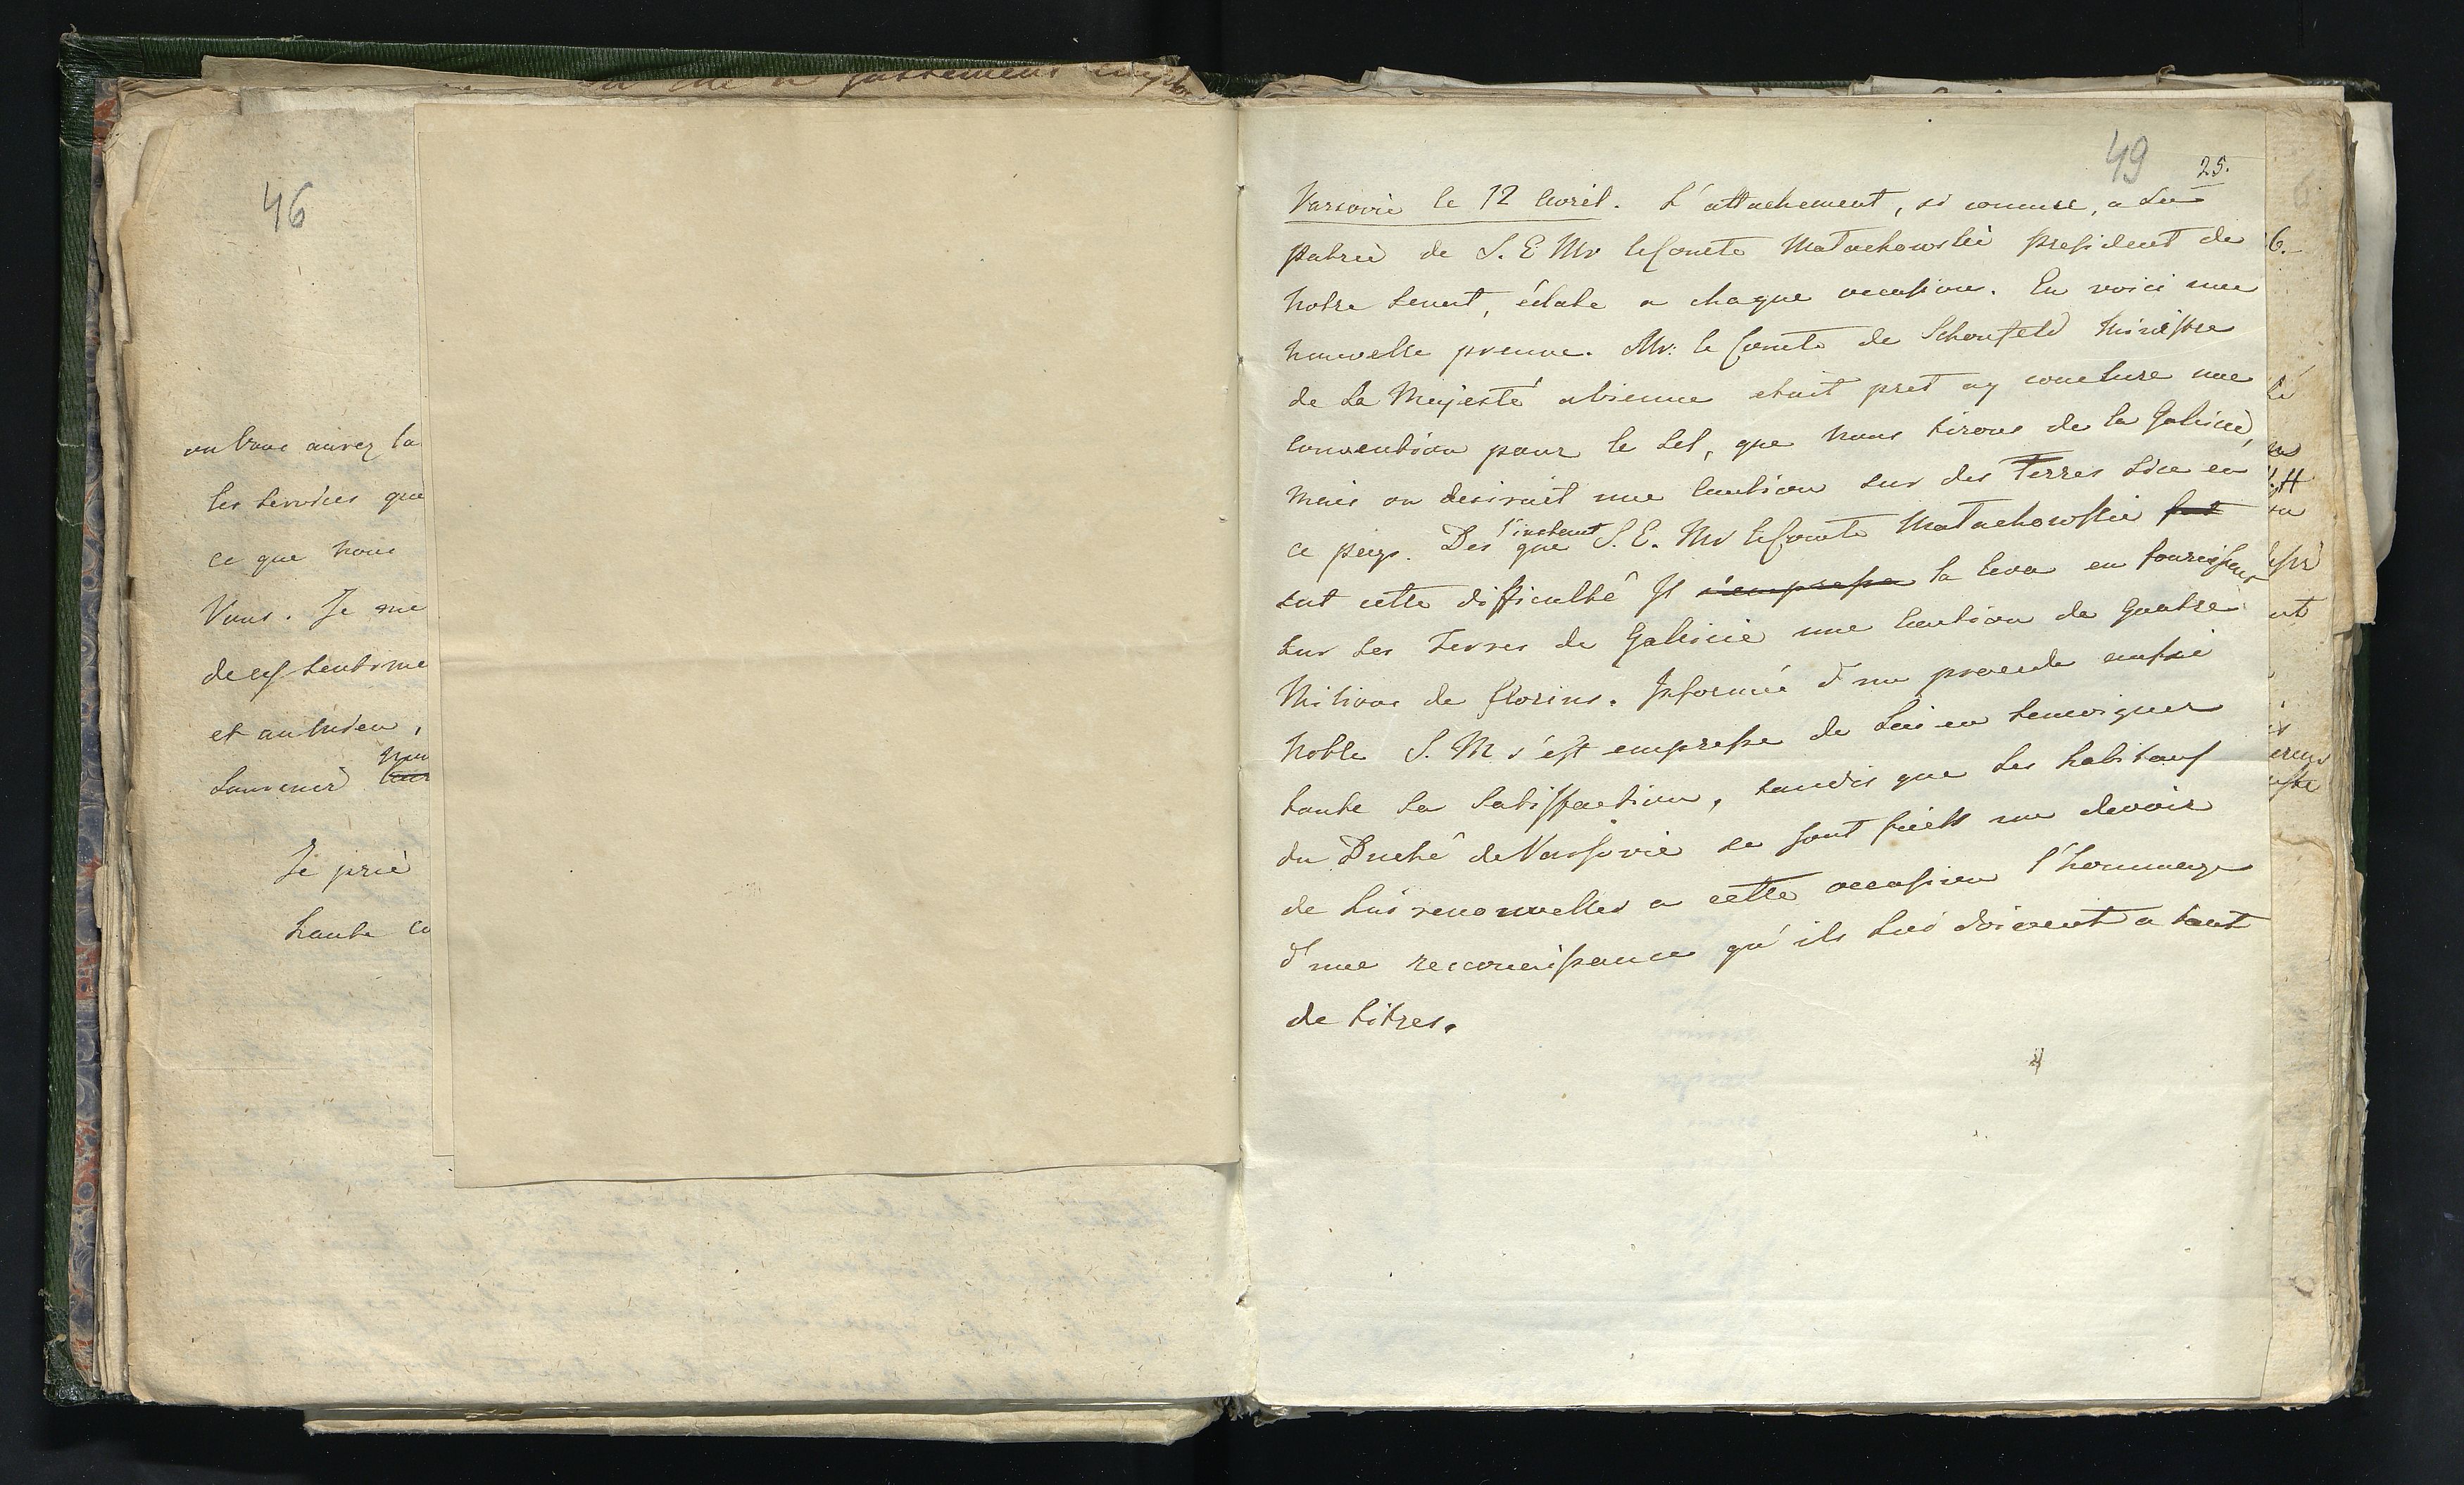 46
on vous aurez la
les services que
ce que nous
Vous. Je me
de ces sentime
et ancien,
nou
Souvenir
Je prie
haute co
49
25.
Varsovie le 12 Avril. L'attachement, si connue, a sa
patrie de S. E. Mr le Comte Małachowski president de
notre Senat, éclate a chaque occasion. En voici une
nouvelle preuve. Mr. le Comte de Schonfeld Ministre
de Sa Majesté etait pret ay conclure une
convention pour le Sel, que nous tirons de la Galicie,
mais on desirait une caution sur des Terres Sise en
l'instant
ce pays. Des que S. E. Mr le Comte Małachowski fut
sut cette difficulté Il s'empressa la leva en fournissant
sur ses Terres de Galicie une caution de quatre
Milions de florins. Informé d'un procede aussi
noble S. M s'est empressé de Lui en temoigner
toute Sa Satisfaction, tandis que les habitans
du Duché de Varsovie se sont faits un devoir
de Lui renouveller a cette occasion l'hommage
d'une reconnaissance qu'ils Lui doivent a tant
de titres.
6.